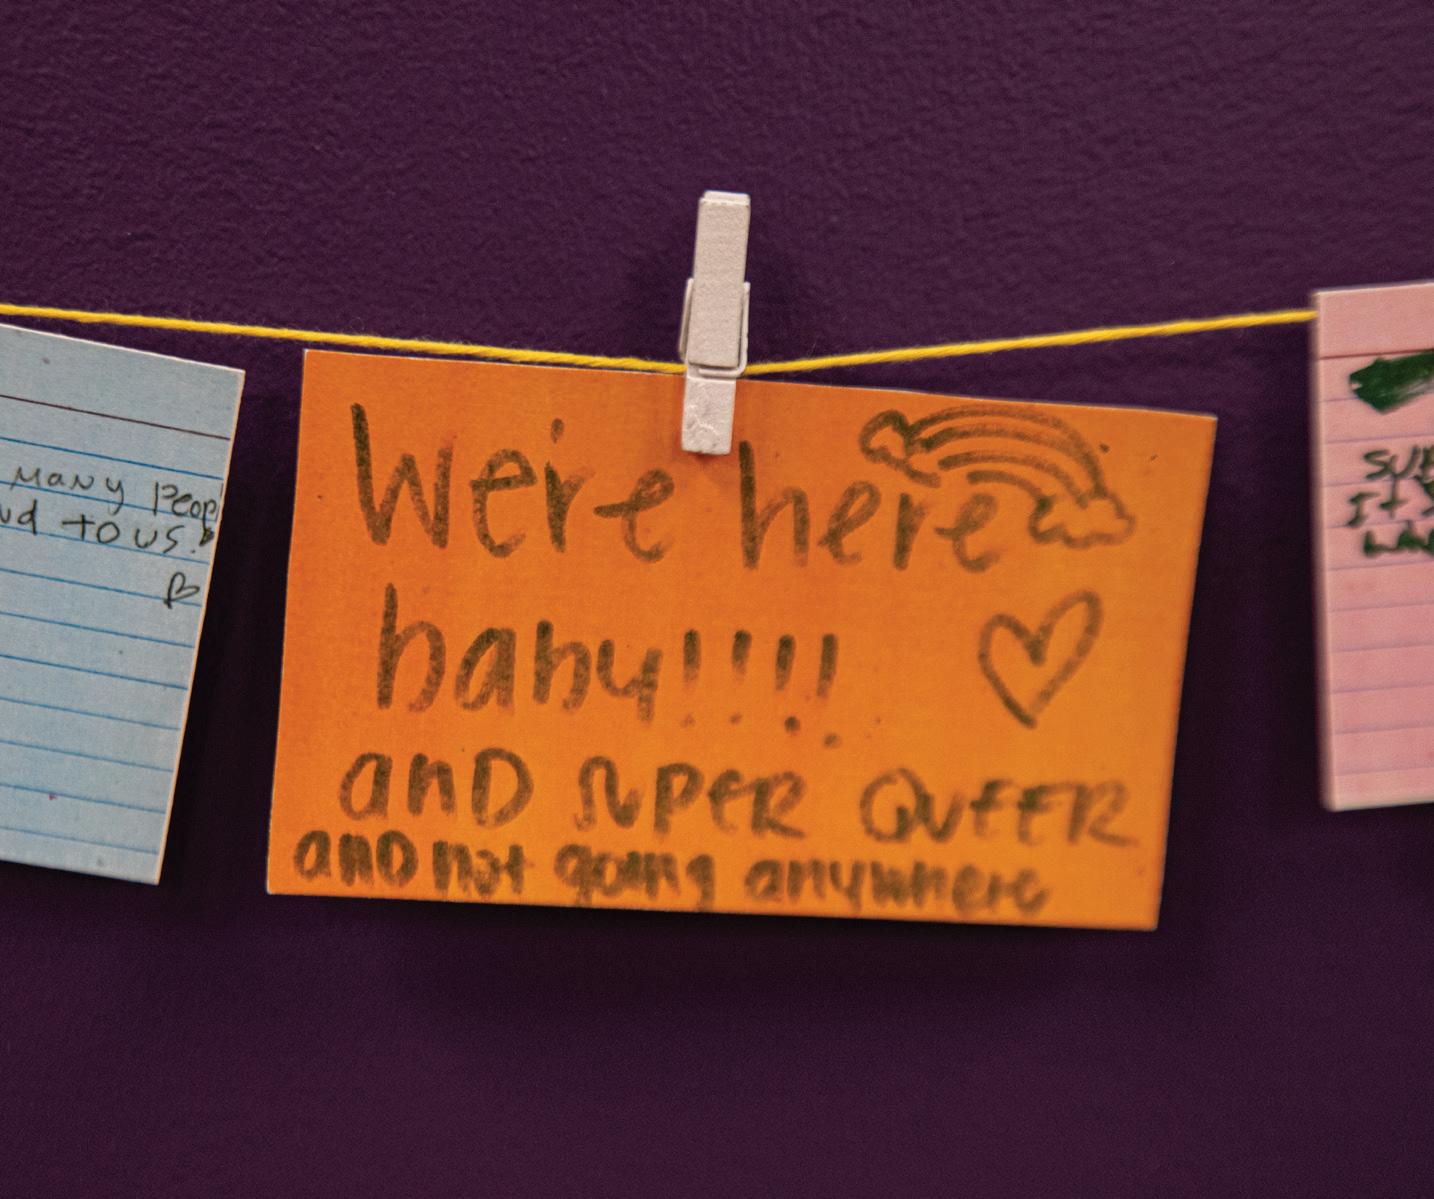 MANY PEOP
TO US.
We're here
baby!!!!
and SUPER QUEER
and not going anywhere